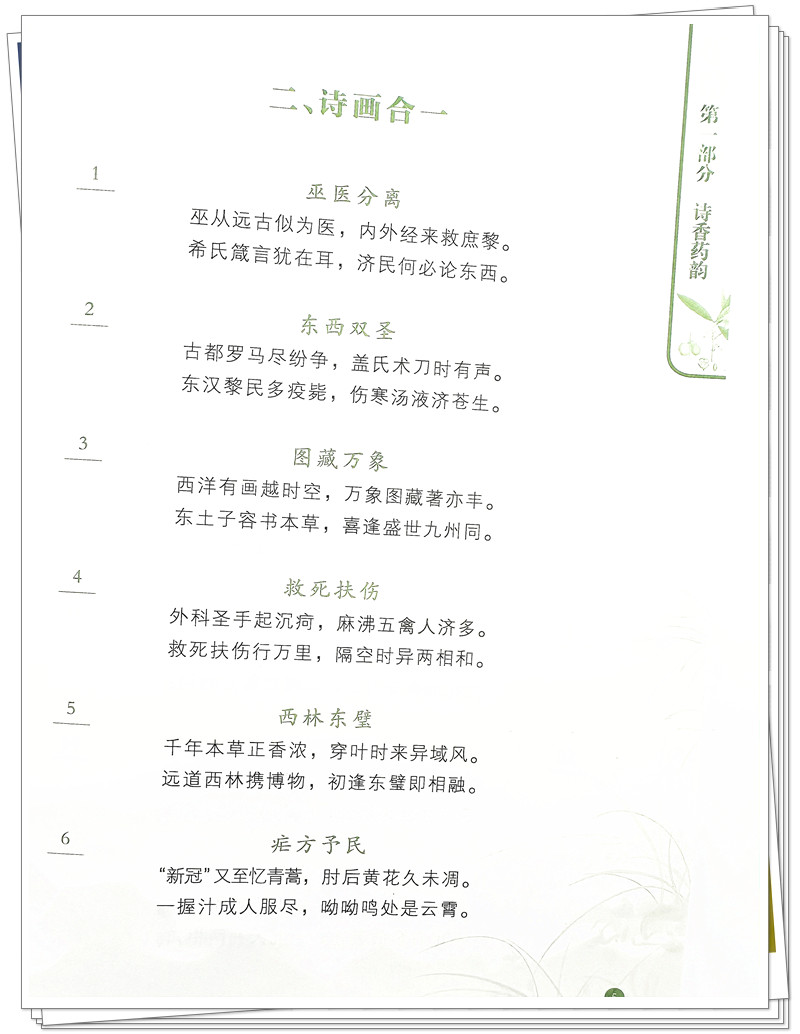 二、诗画合一
第一部分 诗香药韵
1
巫医分离
巫从远古似为医，内外经来救庶黎。
希氏箴言犹在耳，济民何必论东西。
2
东西双圣
古都罗马尽纷争，盖氏术刀时有声。
东汉黎民多疫毙，伤寒汤液济苍生。
3
图藏万象
西洋有画越时空，万象图藏著亦丰。
东土子容书本草，喜逢盛世九州同。
4
救死扶伤
外科圣手起沉疴，麻沸五禽人济多。
救死扶伤行万里，隔空时异两相和。
5
西林东璧
千年本草正香浓，穿叶时来异域风。
远道西林携博物，初逢东璧即相融。
6
疟方予民
“新冠”又至忆青蒿，肘后黄花久未凋。
一握汁成人服尽，呦呦鸣处是云霄。